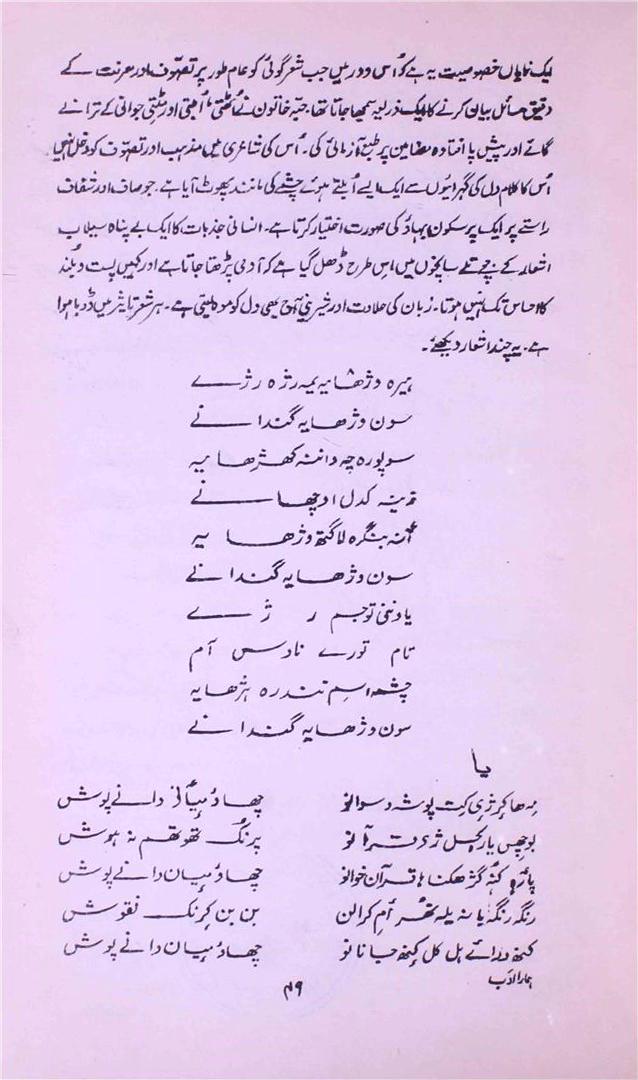 ایک نمایاں خصوصیت یہ ہے کہ اُس دور میں جب شعر گوئی کو عام طور پر تصوّف اور معرفت کے
دقیق مسائل بیان کرنے کا ایک ذریعہ سمجھا جاتا تھا، حبّہ خاتون نے مٹتی، اُمٹتی اور مٹتی جوانی کے ترانے
گائے اور پیش پا افتادہ مضامین پر طبع آزمائی کی۔ اُس کی شاعری میں مذہب اور تصوّف کو دخل نہیں
اُس کا کلام دل کی گہرائیوں سے ایک ایسے اُبلتے ہوئے چشمے کی مانند پھوٹ آیا ہے۔ جو صاف اور شفاف
راستے پر ایک پرسکون بہاؤ کی صورت اختیار کرتا ہے۔ انسانی جذبات کا ایک بے پناہ سیلاب
اشعار کے جچے تلے سانچوں میں اِس طرح ڈھل گیا ہے کہ آدمی پڑھتا جاتا ہے اور کہیں پست و بُلند
کا احساس تک نہیں ہوتا۔ زبان کی حلاوت اور شیرینی آج بھی دل کو موہ لیتی ہے۔ ہر شعر تاثیر میں ڈوبا ہوا
ہے۔ یہ چند اشعار دیکھئے۔
ہیرہ وژھایہ یمہ رژہ رژے
سون وژھایہ گندانے
سوپورہ چہ دانہ کھژھایہ
کدل اوچھانے
آنہ بنگرہ لاگتھ وژھایہ
سون وژھایہ گندانے
یاونی توجم رژے
تام تورے نادس آم
چشمہ اسم نندرہ ہژھایہ
سون وژھایہ گندانے
یا
یہ ھا کرژی کت پوشہ دسوانو چھاو میانی دانے پوش
پرنگ تھوتھم نہ ہوش
قرآن خوانو چھاو میان دانے پوش
رنگہ رنگہ یانہ یلہ آم کرالن بن بن کرنک نقوش
کنھ ورائے ہل کل کنھ جانانو چھاو میان دانے پوش
ہمارا ادب
۴۹